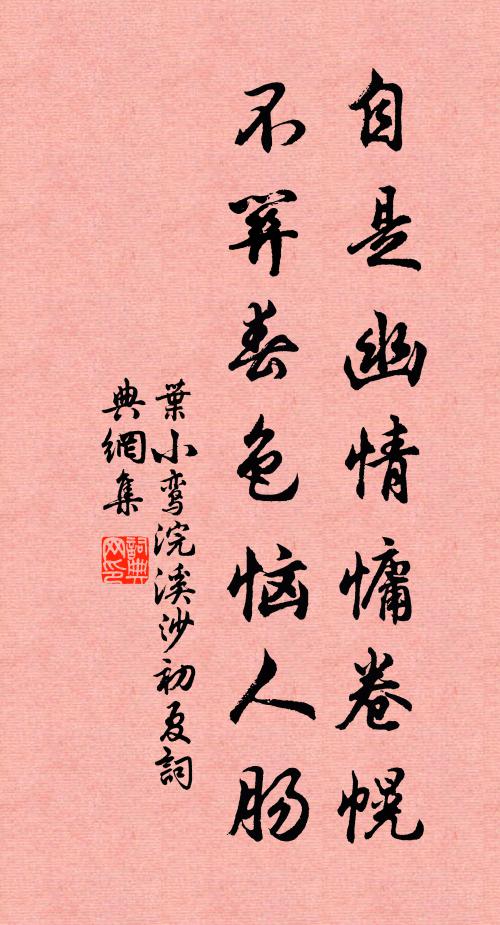 自是幽情慵卷幌
不関春色恼人肠
葉小鸾浣溪沙初夏詞
典網集
詞典
网印